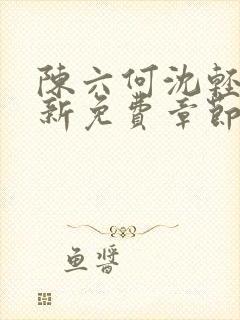 陳六何沈輕
新免費章節
魚醬